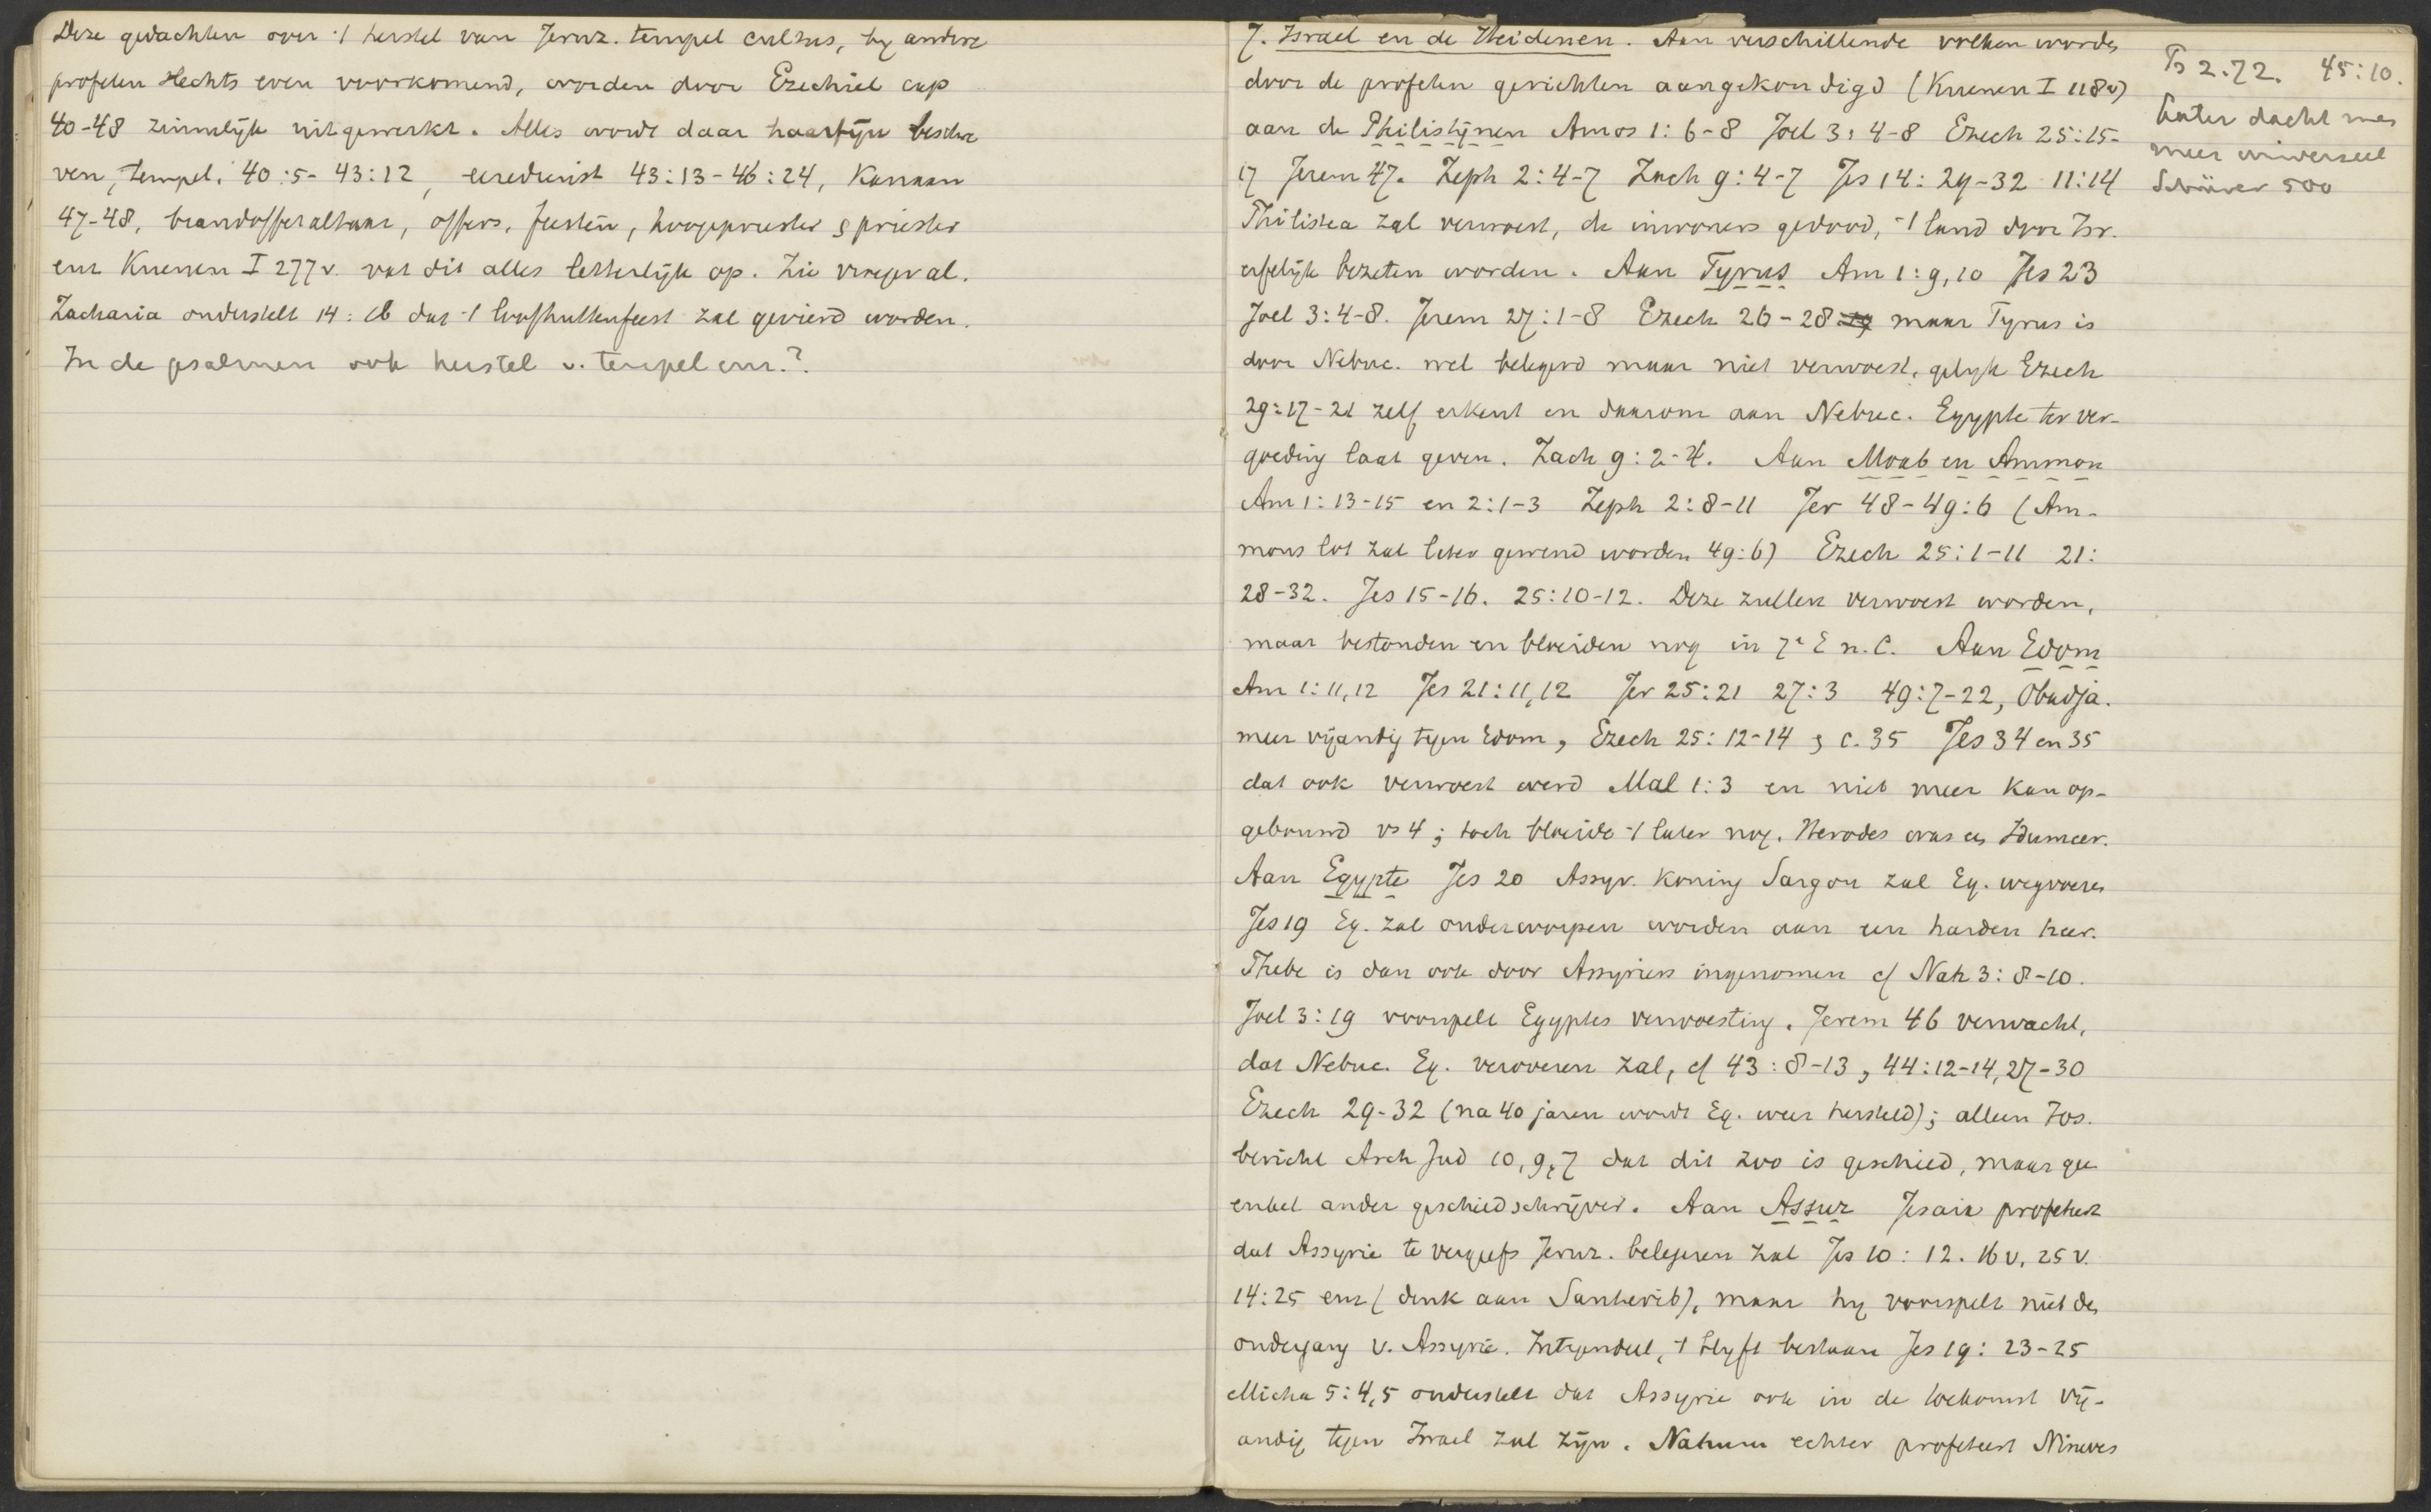 Deze gedachten over 't herstel van Jeruz. tempel cultus, by andere
profeten slechts even voorkomend, worden door Ezechiel cap
40-48 zinnelijk uitgewerkt. Alles wordt daar haarfijn beschre
ven, tempel: 40:5-43:12, eeredienst 43:13-46:24, Kanaan
47-48, brandofferaltaar, offers, feesten, hoogepriester & priester
enz Kuenen I 277v. vat dit alles letterlijk op. Zie vroeger al.
Zacharia onderstelt 14:16 dat 't loofhuttenfeest zal gevierd worden.
In de psalmen ook herstel v. tempel enz.?
7. Israel en de Heidenen. Aan verschillende volken worden
door de profeten gerichten aangekondigd (Kuenen I 118v)
aan de Philistijnen Amos 1:6-8 Joel 3:4-8 Ezech 25:15-
17 Jerem 47. Zeph 2:4-7 Zach 9:4-7 Jes 14:29-32 11:14
Philistea zal verwoest, de inwoners gedood, 't land door Isr.
erfelijk bezeten worden. Aan Tyrus Am 1:9,10 Jes 23
Joel 3:4-8. Jerem 27:1-8 Ezech 26-28 maar Tyrus is
door Nebuc. wel belegerd maar niet verwoest, gelijk Ezech
29:17-21 zelf erkent en daarom aan Nebuc. Egypte ter ver-
goeding laat geven. Zach 9:2-4. Aan Moab en Ammon
Am 1:13-15 en 2:1-3 Zeph 2:8-11 Jer 48-49:6 (Am-
mons lot zal later gewend worden 49:6) Ezech 25:1-11 21:
28-32. Jes 15-16. 25:10-12. Deze zullen verwoest worden,
maar bestonden en bloeiden nog in 7e E n.C. Aan Edom
Am 1:11,12 Jes 21:11,12 Jer 25:21 27:3 49:7-22, Obadja.
meer vijandig tegen Edom, Ezech 25:12-14 & c. 35 Jes 34 en 35
dat ook verwoest werd Mal 1:3 en niet meer kan op-
gebouwd vs 4; toch bloeide 't later nog. Herodes was een Idumeer.
Aan Egypte Jes 20 Assyr. koning Sargon zal Eg. wegvoeren
Jes 19 Eg. zal onderworpen worden aan een harden heer.
Thebe is dan ook door Assyriers ingenomen cf Nah 3:8-10.
Joel 3:19 voorspelt Egyptes verwoesting. Jerem 46 verwacht,
dat Nebuc. Eg. veroveren zal, cf 43:8-13, 44:12-14, 27-30
Ezech 29-32 (na 40 jaren wordt Eg. weer hersteld); alleen Jos.
bericht Arch Jud 10,9,7 dat dit zoo is geschied, maar gee
enkel ander geschiedschrijver. Aan Assur Jesaia profeteert
dat Assyrie te vergeefs Jeruz. belegeren zal Jes 10:12. 16v, 25v.
14:25 enz (denk aan Sanherib), maar hy voorspelt niet den
ondergang v. Assyrie. Integendeel, 't blyft bestaan Jes 19:23-25
Micha 5:4,5 onderstelt dat Assyrie ook in de toekomst vij-
andig tegen Israel zal zijn. Nahum echter profeteert Nineves
Ps 2. 72. 45:10.
Later dacht men
meer universeel
Schürer 500